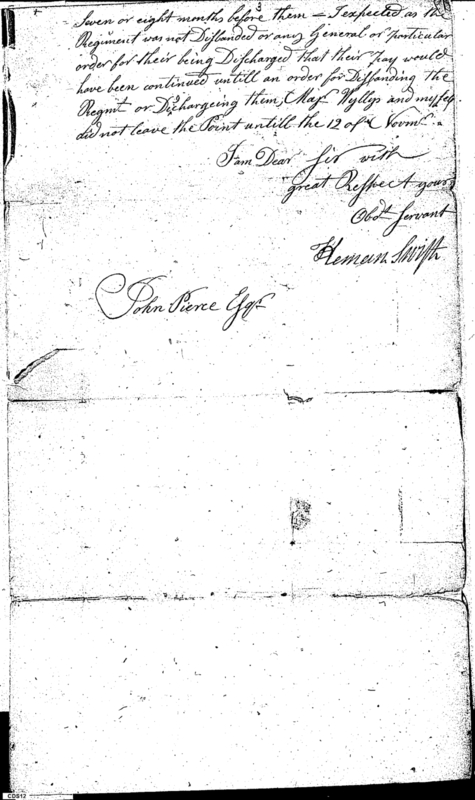 Seven or eight months before them = I expected as the
Regiment was not Disbanded or any General or particular
order for their being Discharged that their pay would
have been continued untill an order for Disbanding the
Regmt or Dischargeing them, Majr Wyllys and myself
did not leave the Point untill the 12 of Novmr.
I am Dear Sir with
great Respect your
Obdt Servant
Heman Swift
John Pierce Esqr
CDS12